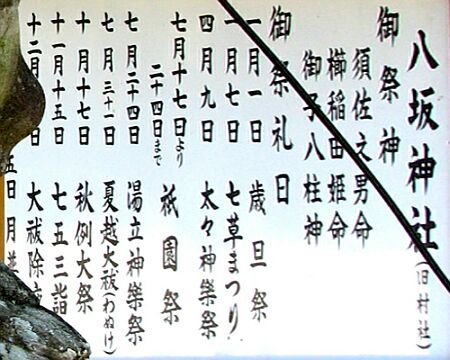 八坂神社(旧村社)
御祭神
須佐之男命
櫛稲田姫命
御子八柱神
御祭礼日
一月一日 歳旦祭
一月七日 七草まつり
四月九日 太々神樂祭
七月十七日より
二十四日まで 祇園祭
七月二十四日 湯立神樂祭
七月三十一日 夏越大祓(わぬけ)
十月十七日 秋例大祭
十一月十五日 七五三詣
十二月 日 大祓除夜
五日 月